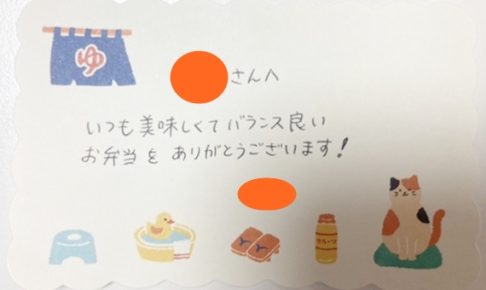 ゆ
さんへ
いつも美味しくてバランス良い
お弁当を ありがとうございます!
フルーツ